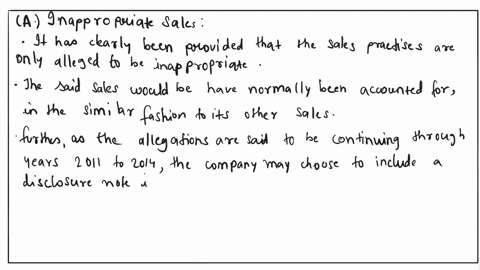 (A.) Inappropriate Sales:
· It has clearly been provided that the sales practises are
only alleged to be inappropriate.
· The said sales would be have normally been accounted for,
in the similar fashion to its other sales.
· further, as the allegations are said to be continuing through
years 2011 to 2014, the company may choose to include a
disclosure note i